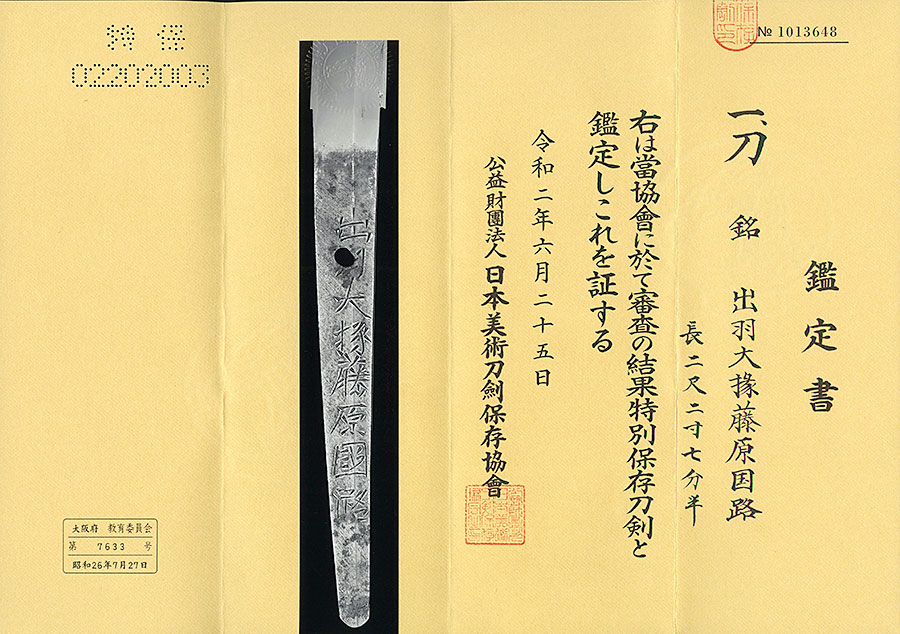 № 1013648
鑑定書
一、刀 銘 出羽大掾藤原国路
長二尺二寸七分半
右は當協會に於て審査の結果特別保存刀剣と
鑑定しこれを証する
令和二年六月二十五日
公益財團法人 日本美術刀劍保存協會
出羽大掾藤原國路
特保
02202003
大阪府 教育委員会
第 7633 号
昭和26年7月27日